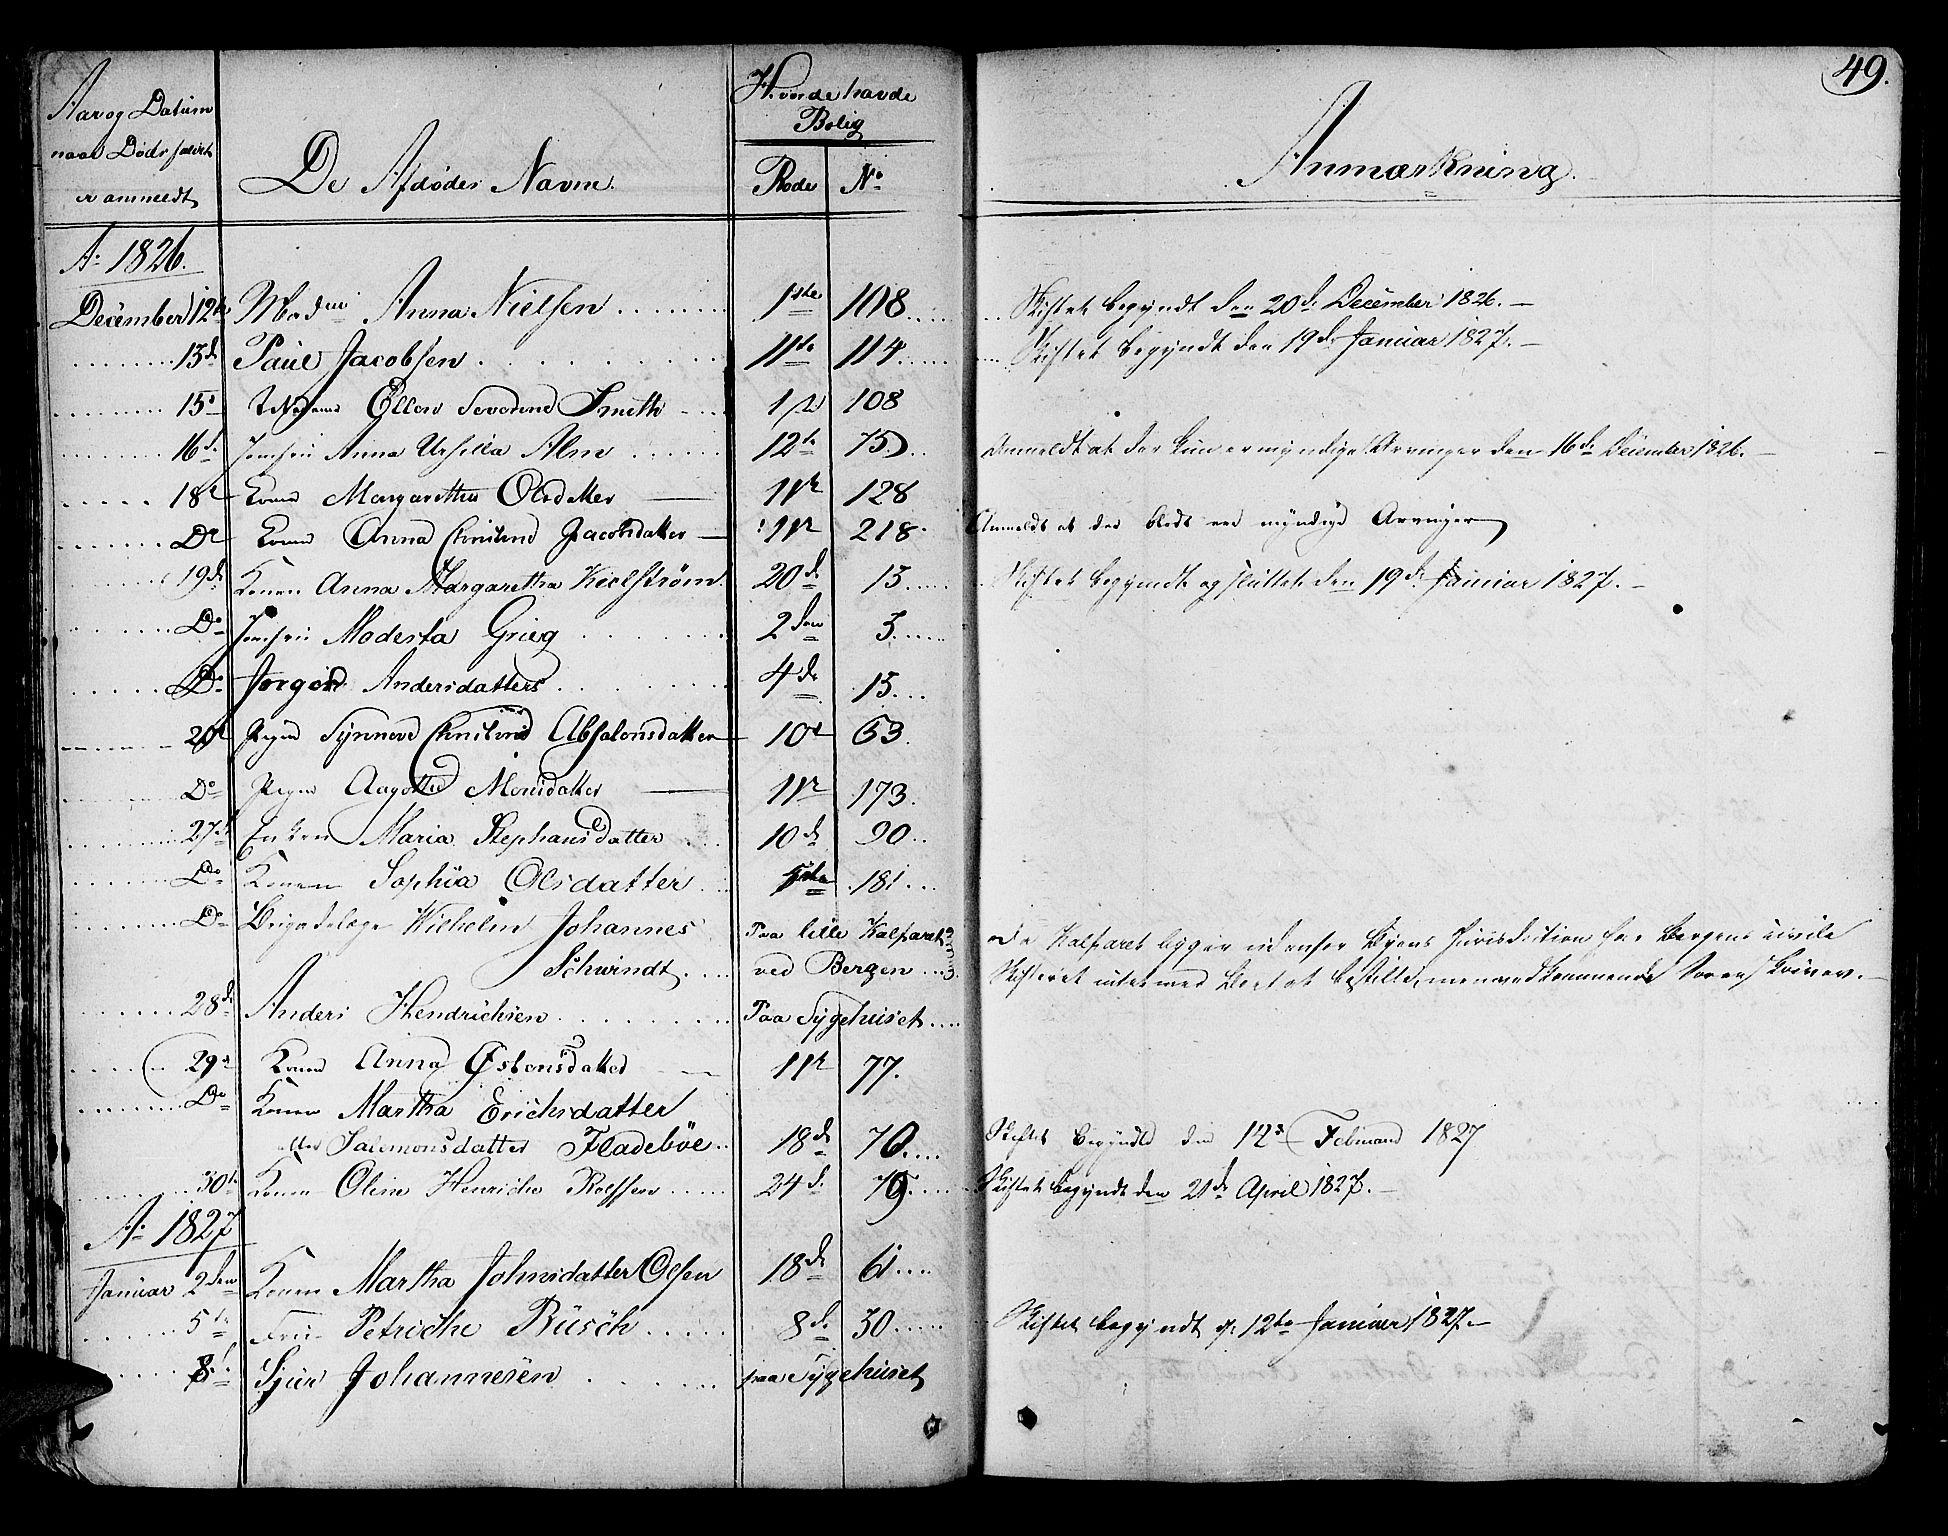 49.
Aar og Datum
naar Dødsfaldet
er anmeldt
De Afdødes Navne.
Hvor de havde
Bolig
Rode No
Anmærkning.
Ao 1826.
December 12te Madme Anna Nielsen 1ste 108 Skiftet begyndt den 20de December 1826.
13de Paul Jacobsen 11te 114 Skiftet begyndt den 19de Januar 1827.
15de Madame Ellen Severine Smith 1ste 108
16de Jomfru Anna Ursilla Alm 12te 75 Anmeldt at der kun er myndige Arvinger den 16de December 1826.
18de Konen Margaretha Olsdatter 11te 128
Do Konen Anna Christine Jacobsdatter 11te 218 Anmeldt at der blodt ere myndige Arvinger
19de Konen Anna Margaretha Kielstrøm 20de 13 Skiftet begyndt og sluttet den 19de Januar 1827.
Do Jomfru Modesta Grieg 2den 3
Do Jørgen Andersdatters 4de 13
20de Pigen Synneve Christine Absalonsdatter 10de 63
Do Pigen Aagotha Monsdatter 11te 173
27de Enken Maria Stephansdatter 10de 90
Do Konen Sophia Olsdatter 181
Do Brigadelæge Wilhelm Johannes Paa lille Kalfaret
Schwindt ved Bergen
Kalfaret ligger udenfor Byens Jurisdiction har Bergens civile
Skifteret intet med Boet at bestille, men vedkommende Sorenskriver.
28de Anders Hendrichsen Paa Sygehuset
29de Konen Anna Østensdatter 11te 77.
Do Konen Martha Erichsdatter
eller Salomonsdatter Fladebøe 18de 70 Skiftet begyndte den 12te Februari 1827
30te Konen Oline Henriche Rolfsen 24de 79 Skiftet begyndt den 21de April 1827.
Ao 1827
Januar 2den Konen Martha Johnsdatter Olsen 18de 61
5te Fru Petriche Büsch 8de 30 Skiftet begyndt d. 12te Januar 1827.
8de Sjur Johannesen paa Sygehuset